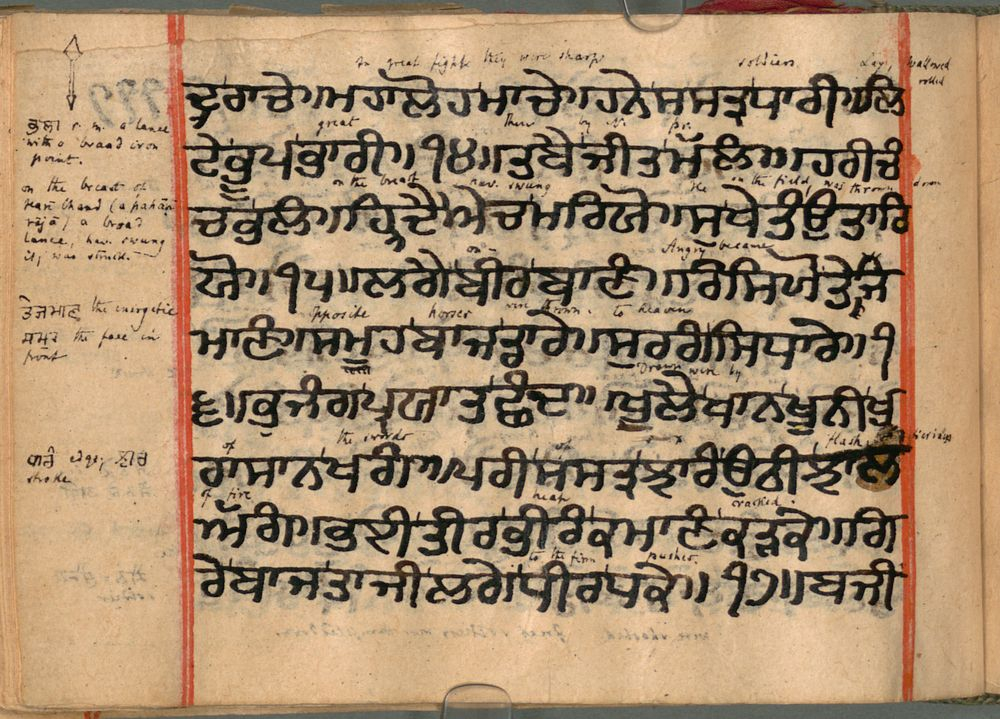 In great fights they were sharp soldiers Lay, wallowed
rolled
ਦ੍ਰਰਾਚੇ॥ਮਹਾਲੋਹਮਾਚੇ॥ਹਨੇਸਸਤ੍ਰਧਾਰੀ॥ਲਿ
great their by
ਟੇਭੂਪਭਾਰੀ॥੧੪॥ਤਬੈਜੀਤਮੱਲੰ॥ਹਰੀਚੰ
on the breast hav. swung He on the field was thrown down
ਦਭਲੰ॥ਹ੍ਰਿਦੈਐਚਮਰਿਯੋ॥ਸੁਖੇਤੰਉਤਾਰਿ
on Angry became
ਯੋ॥੧੫॥ਲਗੇਬੀਰਬਾਣੰ॥ਰਿਸਿਯੋਤੇਜਿ
Opposite horses were thrown. to heaven
ਮਾਣੰ॥ਸਮੂਹਬਾਜਡਾਰੇ॥ਸੁਰਗੰਸਿਧਾਰੇ॥੧
Drawn were by
੬॥ਭੁਜੰਗਪ੍ਰਯਾਤਛੰਦ॥ਖੁਲੈਖਾਨਖੂਨੀਖੁ
of the swords of flash
ਰਾਸਾਨਖਗੰ॥ਪਰੀਸਸਤ੍ਰਝਾਰੰਉਠੀਝਾਲ
of fire heap cracked.
ਅੱਗੰ॥ਭਈਤੀਰਭੀਰੰਕਮਾਣੰਕੜਕੇ॥ਗਿ
to the firm pushes.
ਰੇਬਾਜਤਾਜੀਲਗੇਧੀਰਧਕੇ॥੧੭॥ਬਜੀ
ਭਲਾ s. m. a lance
with a broad iron
point.
on the breast of
Hari Chand (a pahārī
rājā) a broad
lance, hav. swung
it, was struck.
ਤੇਜਮਾਣ the energetic
ਸਮੂਹ the face in
front
ਧਾਰੰ edge, ਝਾਰ
stroke